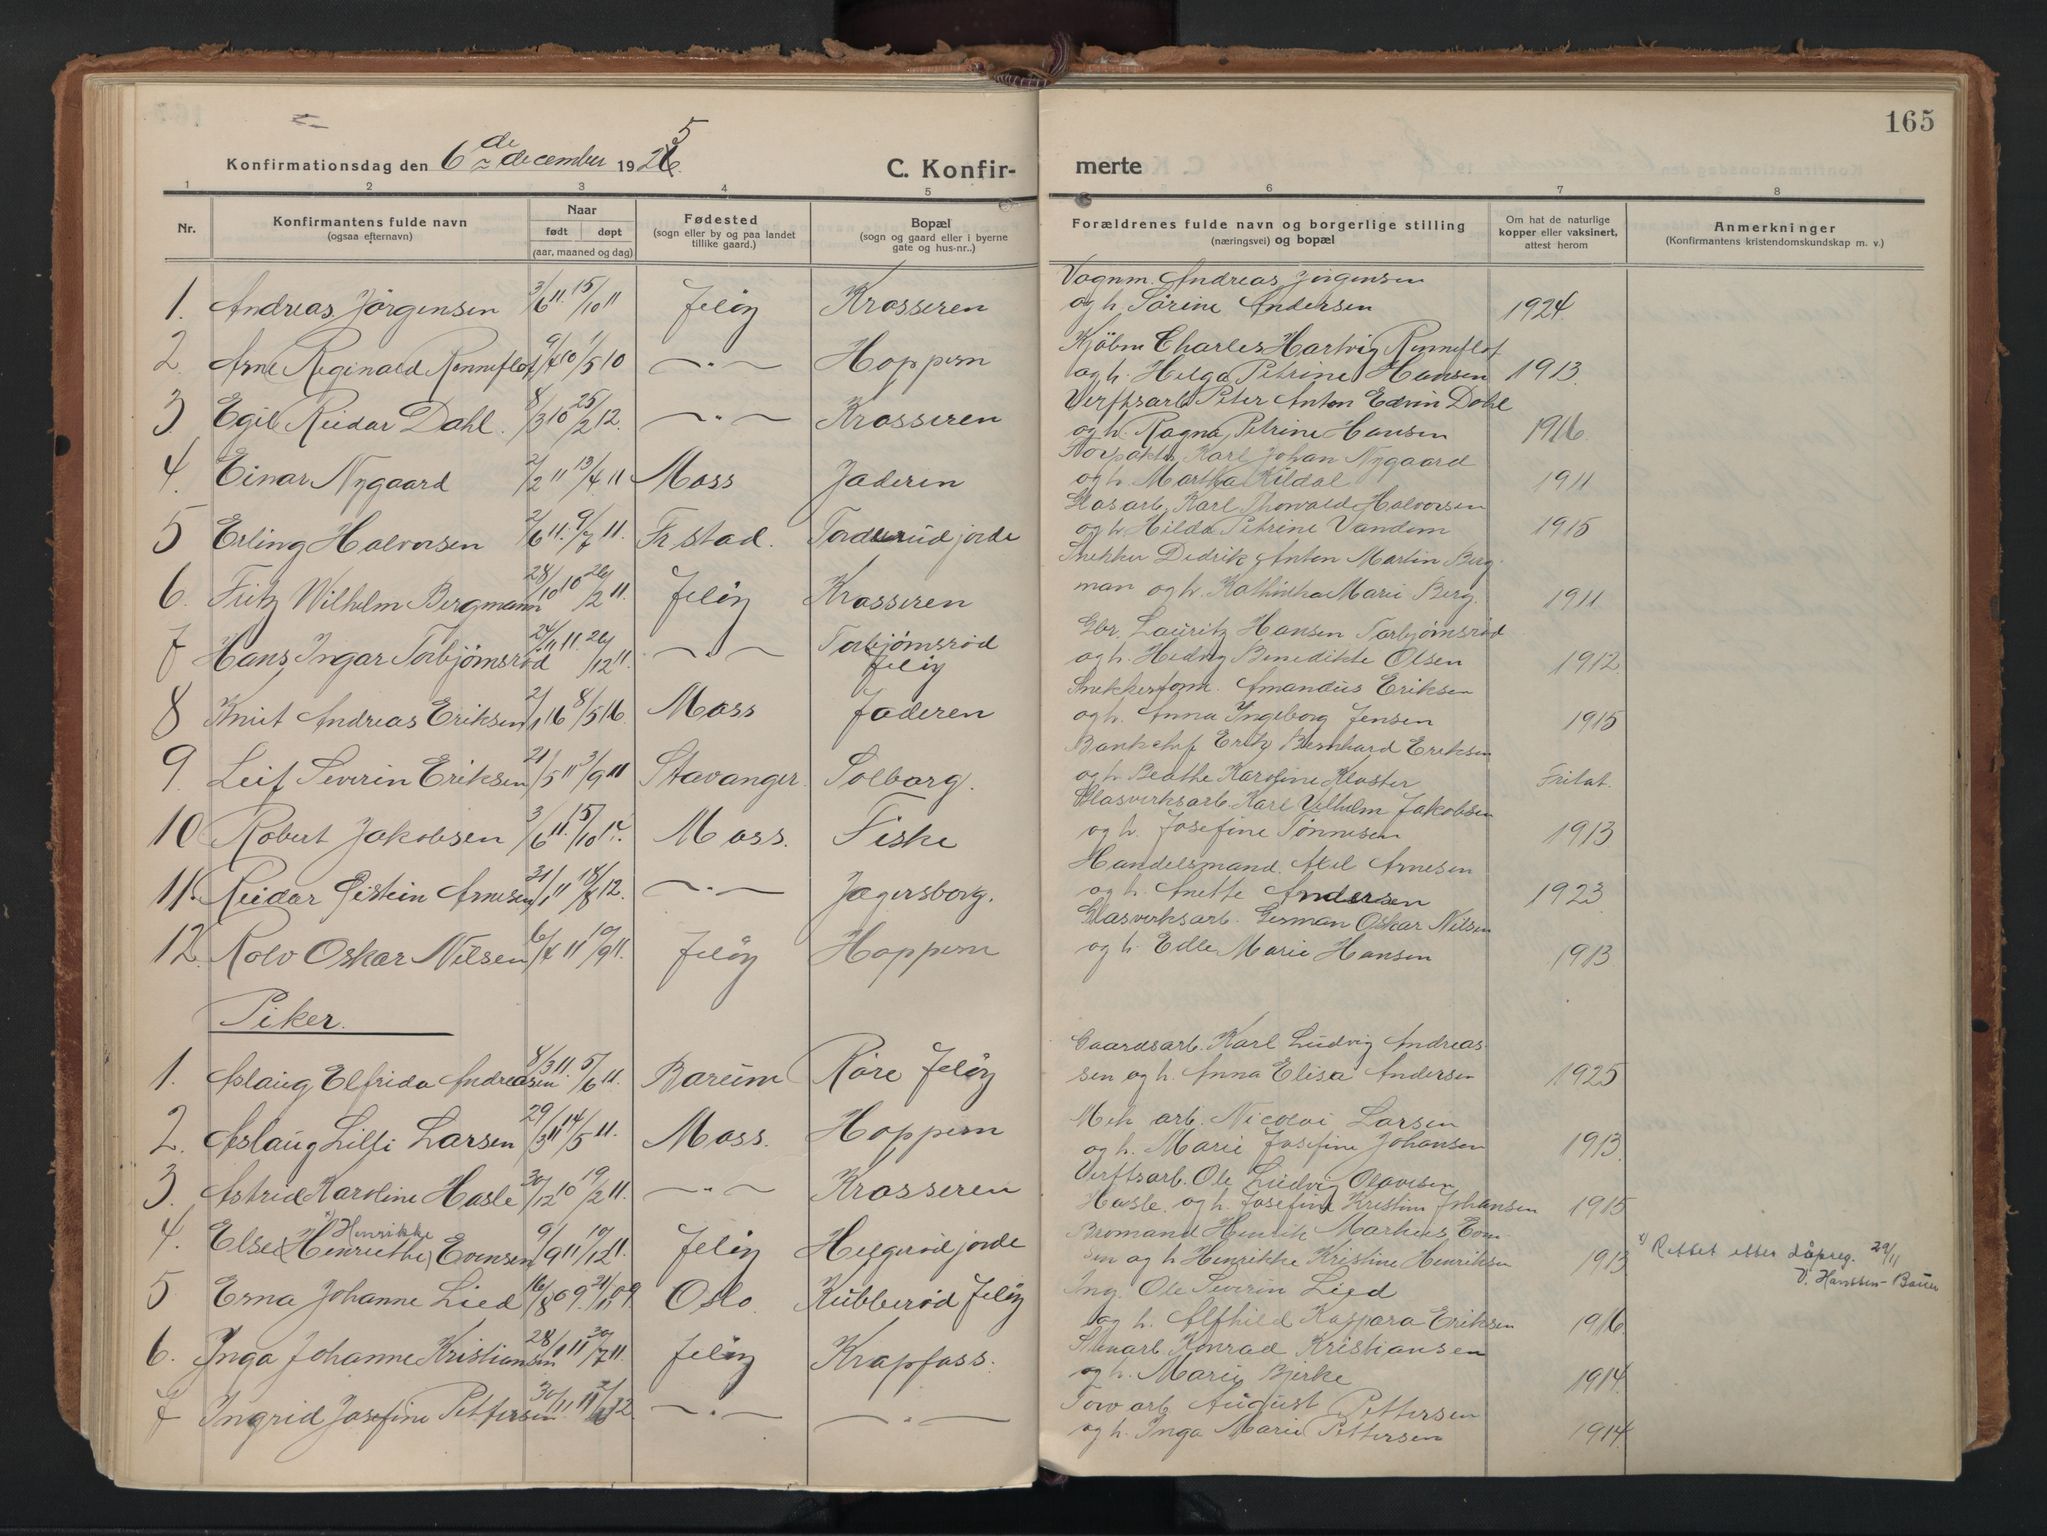 165
Konfirmationsdag den 6 de december 1926. 5
C. Konfirmerte
1 2 3 4 5 6 7 8
Nr. Konfirmantens fulde navn (ogsaa efternavn) Naar født døpt (aar, maaned og dag) Fødested (sogn eller by og paa landet tillike gaard.) Bopæl (sogn og gaard eller i byerne gate og hus-nr..) Forældrenes fulde navn og borgerlige stilling (næringsvei) og bopæl Om hat de naturlige kopper eller vaksinert, attest herom Anmerkninger (Konfirmantens kristendomskundskap m. v.)
Vognm. Andreas Jørgensen
1. Andreas Jørgensen 3/6 11. 15/10 11 Jeløy Krosseren og h. Sørine Andersen 1924.
Kjøbm Charles Hartvig Renneflot
2. Arne Reginald Renneflot 9/4 10 1/5 10 —"— Hoppern og h. Helga Petrine Hansen 1913.
Verftsarb. Peter Anton Edvin Dahl
3. Egil Reidar Dahl. 8/3 10 25/2 12. —"— Krosseren og h. Ragna Petrine Hansen 1916.
Karl Johan Nygaard
4. Einar Nygaard 2/2 11 13/4 11 Moss Jaderen og h. Martha Kildal 1911
Glasarb. Karl Thorvald Halvorsen
5 Erling Halvorsen 2/6 11. 9/7 11. Fr stad. Torderudjorde og h Hilda Petrine Vandem 1915
Snekker Dedrik Anton Martin Berg-
6. Fritz Wilhelm Bergmann 28/10 10 26/2 11. Jeløy Krosseren man og h. Kathinka Marie Berg. 1911.
Gbr. Lauritz Hansen Torbjørnsrød
7 Hans Ingar Torbjørnsrød 24/9 11. 26/12 11. —"— Torbjørnsrød Jeløy og h. Hedvig Benedikte Olsen 1912.
Snekkerform. Amandus Eriksen
8 Knut Andreas Eriksen 2/1 16 8/5 16. Moss Jaderen og h. Anna Ingeborg Jensen 1915
Bankchef Fritz Bernhard Eriksen
9. Leif Severin Eriksen 21/5 11 3/9 11 Stavanger. Solborg. og h Beathe Karoline Kloster Fritat.
Glasverksarb. Karl Vilhelm Jakobsen
10 Robert Jakobsen 3/6 11. 15/10 Moss. Fiske og h. Josefine Tønnesen 1913
Handelsmand. Axel Arnesen
11. Reidar Øistein Arnesen 31/1 11 18/8 12. —"— Jægersborg. og h. Anette Andersen 1923
Glasverksarb. German Oskar Nilsen
12. Rolv Oskar Nilsen 6/4 11 10/9 11. Jeløy Hoppern og h. Edle Marie Hansen 1913
Piker.
Gaardsarb. Karl Ludvig Andreas-
1. Aslaug Elfrida Andreasen 8/3 11. 5/6 11. Bærum Røre Jeløy sen og h. Anna Elisa Andersen 1925
Mek arb. Nicolai Larsen
2. Aslaug Lilli Larsen 29/3 11 14/5 11. Moss. Hoppern og h. Marie Josefine Johansen 1913.
Verftsarb. Ole Ludvig Olavesen
3. Astrid Karoline Hasle 30/12 10 19/2 11. —"— Krosseren Hasle. og h. Josefine Kristine Johansen 1915
x) Henrikke
Bromand Henrik Markus Even-
4. Else (Henriethe) Evensen 9/9 11 10/12 11. Jeløy Helgerødjorde sen og h Henrikke Kristine Henriksen 1913 x) Rettet etter dåpreg. 29/11
V. Hanssen-Bauer
Ing. Ole Severin Lied
5 Erna Johanne Lied 16/8 09. 21/11 09. Oslo. Kubberød Jeløy og h. Alfhild Kaspara Eriksen 1916.
Konrad Kristiansen
6. Inga Johanne Kristiansen 28/1 11 30/7 11. Jeløy Krapfoss. og h. Marie Bjerke 1914.
Tovarb August Pettersen
7 Ingrid Josefine Pettersen 30/11 11 12. —"— —"— og h. Inga Marie Pettersen 1914.